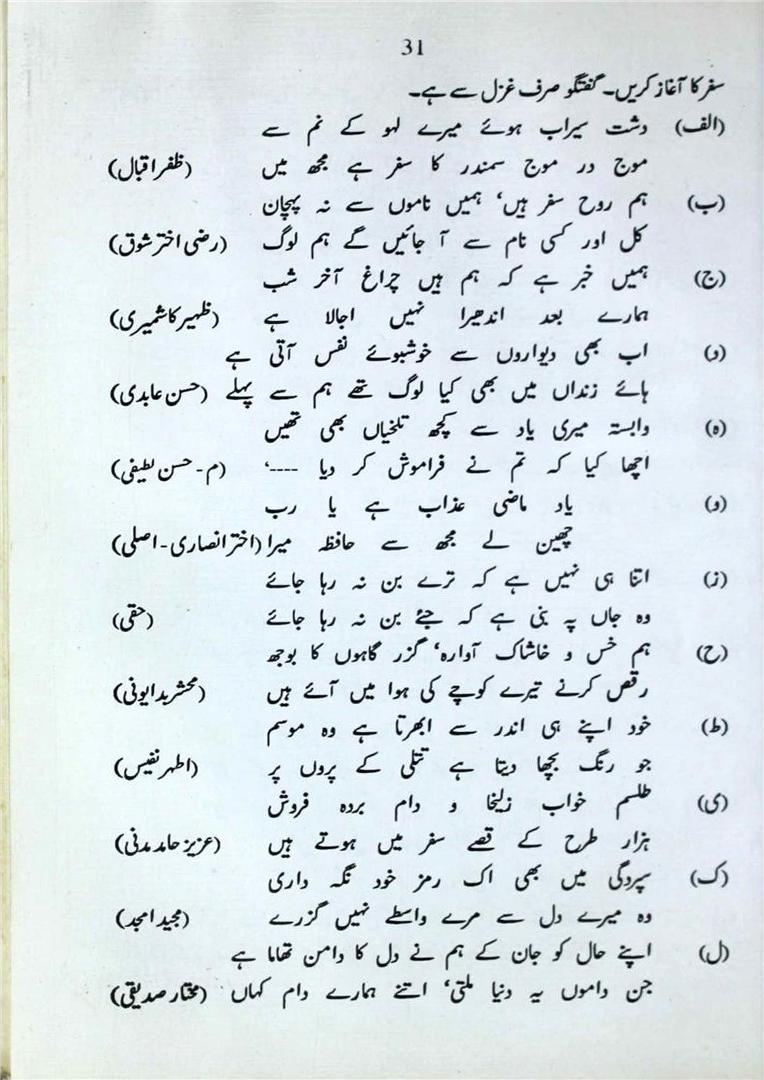 31
سفر کا آغاز کریں۔ گفتگو صرف غزل سے ہے۔
(الف) دشت سیراب ہوئے میرے لہو کے نم سے
موج در موج سمندر کا سفر ہے مجھ میں (ظفر اقبال)
(ب) ہم روح سفر ہیں‘ ہمیں ناموں سے نہ پہچان
کل اور کسی نام سے آ جائیں گے ہم لوگ (رضی اختر شوق)
(ج) ہمیں خبر ہے کہ ہم ہیں چراغ آخر شب
ہمارے بعد اندھیرا نہیں اجالا ہے (ظہیر کاشمیری)
(د) اب بھی دیواروں سے خوشبوئے نفس آتی ہے
ہائے زنداں میں بھی کیا لوگ تھے ہم سے پہلے (حسن عابدی)
(ہ) وابستہ میری یاد سے کچھ تلخیاں بھی تھیں
اچھا کیا کہ تم نے فراموش کر دیا ----‘ (م۔ حسن لطیفی)
(و) یاد ماضی عذاب ہے یا رب
چھین لے مجھ سے حافظہ میرا (اختر انصاری۔ اصلی)
(ز) اتنا ہی نہیں ہے کہ ترے بن نہ رہا جائے
وہ جاں پہ بنی ہے کہ جئے بن نہ رہا جائے (حقی)
(ح) ہم خس و خاشاک آوارہ‘ گزر گاہوں کا بوجھ
رقص کرنے تیرے کوچے کی ہوا میں آئے ہیں (محشر بدایونی)
(ط) خود اپنے ہی اندر سے ابھرتا ہے وہ موسم
جو رنگ بچھا دیتا ہے تتلی کے پروں پر (اطہر نفیس)
(ی) طلسم خواب زلیخا و دام بردہ فروش
ہزار طرح کے قصے سفر میں ہوتے ہیں (عزیز حامد مدنی)
(ک) سپردگی میں بھی اک رمز خود نگہ داری
وہ میرے دل سے مرے واسطے نہیں گزرے (مجید امجد)
(ل) اپنے حال کو جان کے ہم نے دل کا دامن تھاما ہے
جن داموں یہ دنیا ملتی‘ اتنے ہمارے دام کہاں (مختار صدیقی)